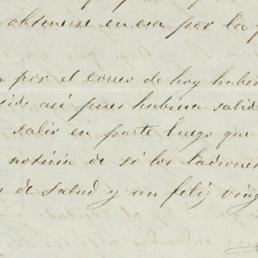 obtuvirse en esa por la p
por el correo de hoy habien
así pues hubiera salido
salir en parte luego que
noticia de si los ladrones
de salud y un feliz viag